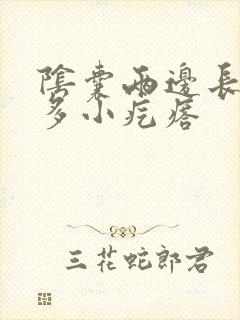 陰囊兩邊長
多小疙瘩
三花蛇郎君